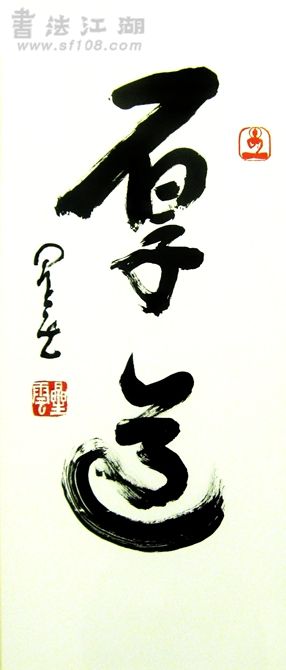 書法江湖
www.sf108.com
厚道
星云
星雲